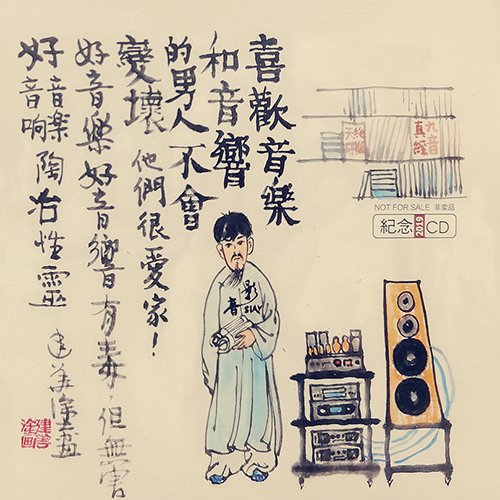 喜歡音樂
和音響
的男人不會
變壞 他們很愛家！
好音樂好音響有毒，但無害
好音樂
好音响 陶冶性靈
九音
真經
NOT FOR SALE 非卖品
紀念 2019 CD
影
音